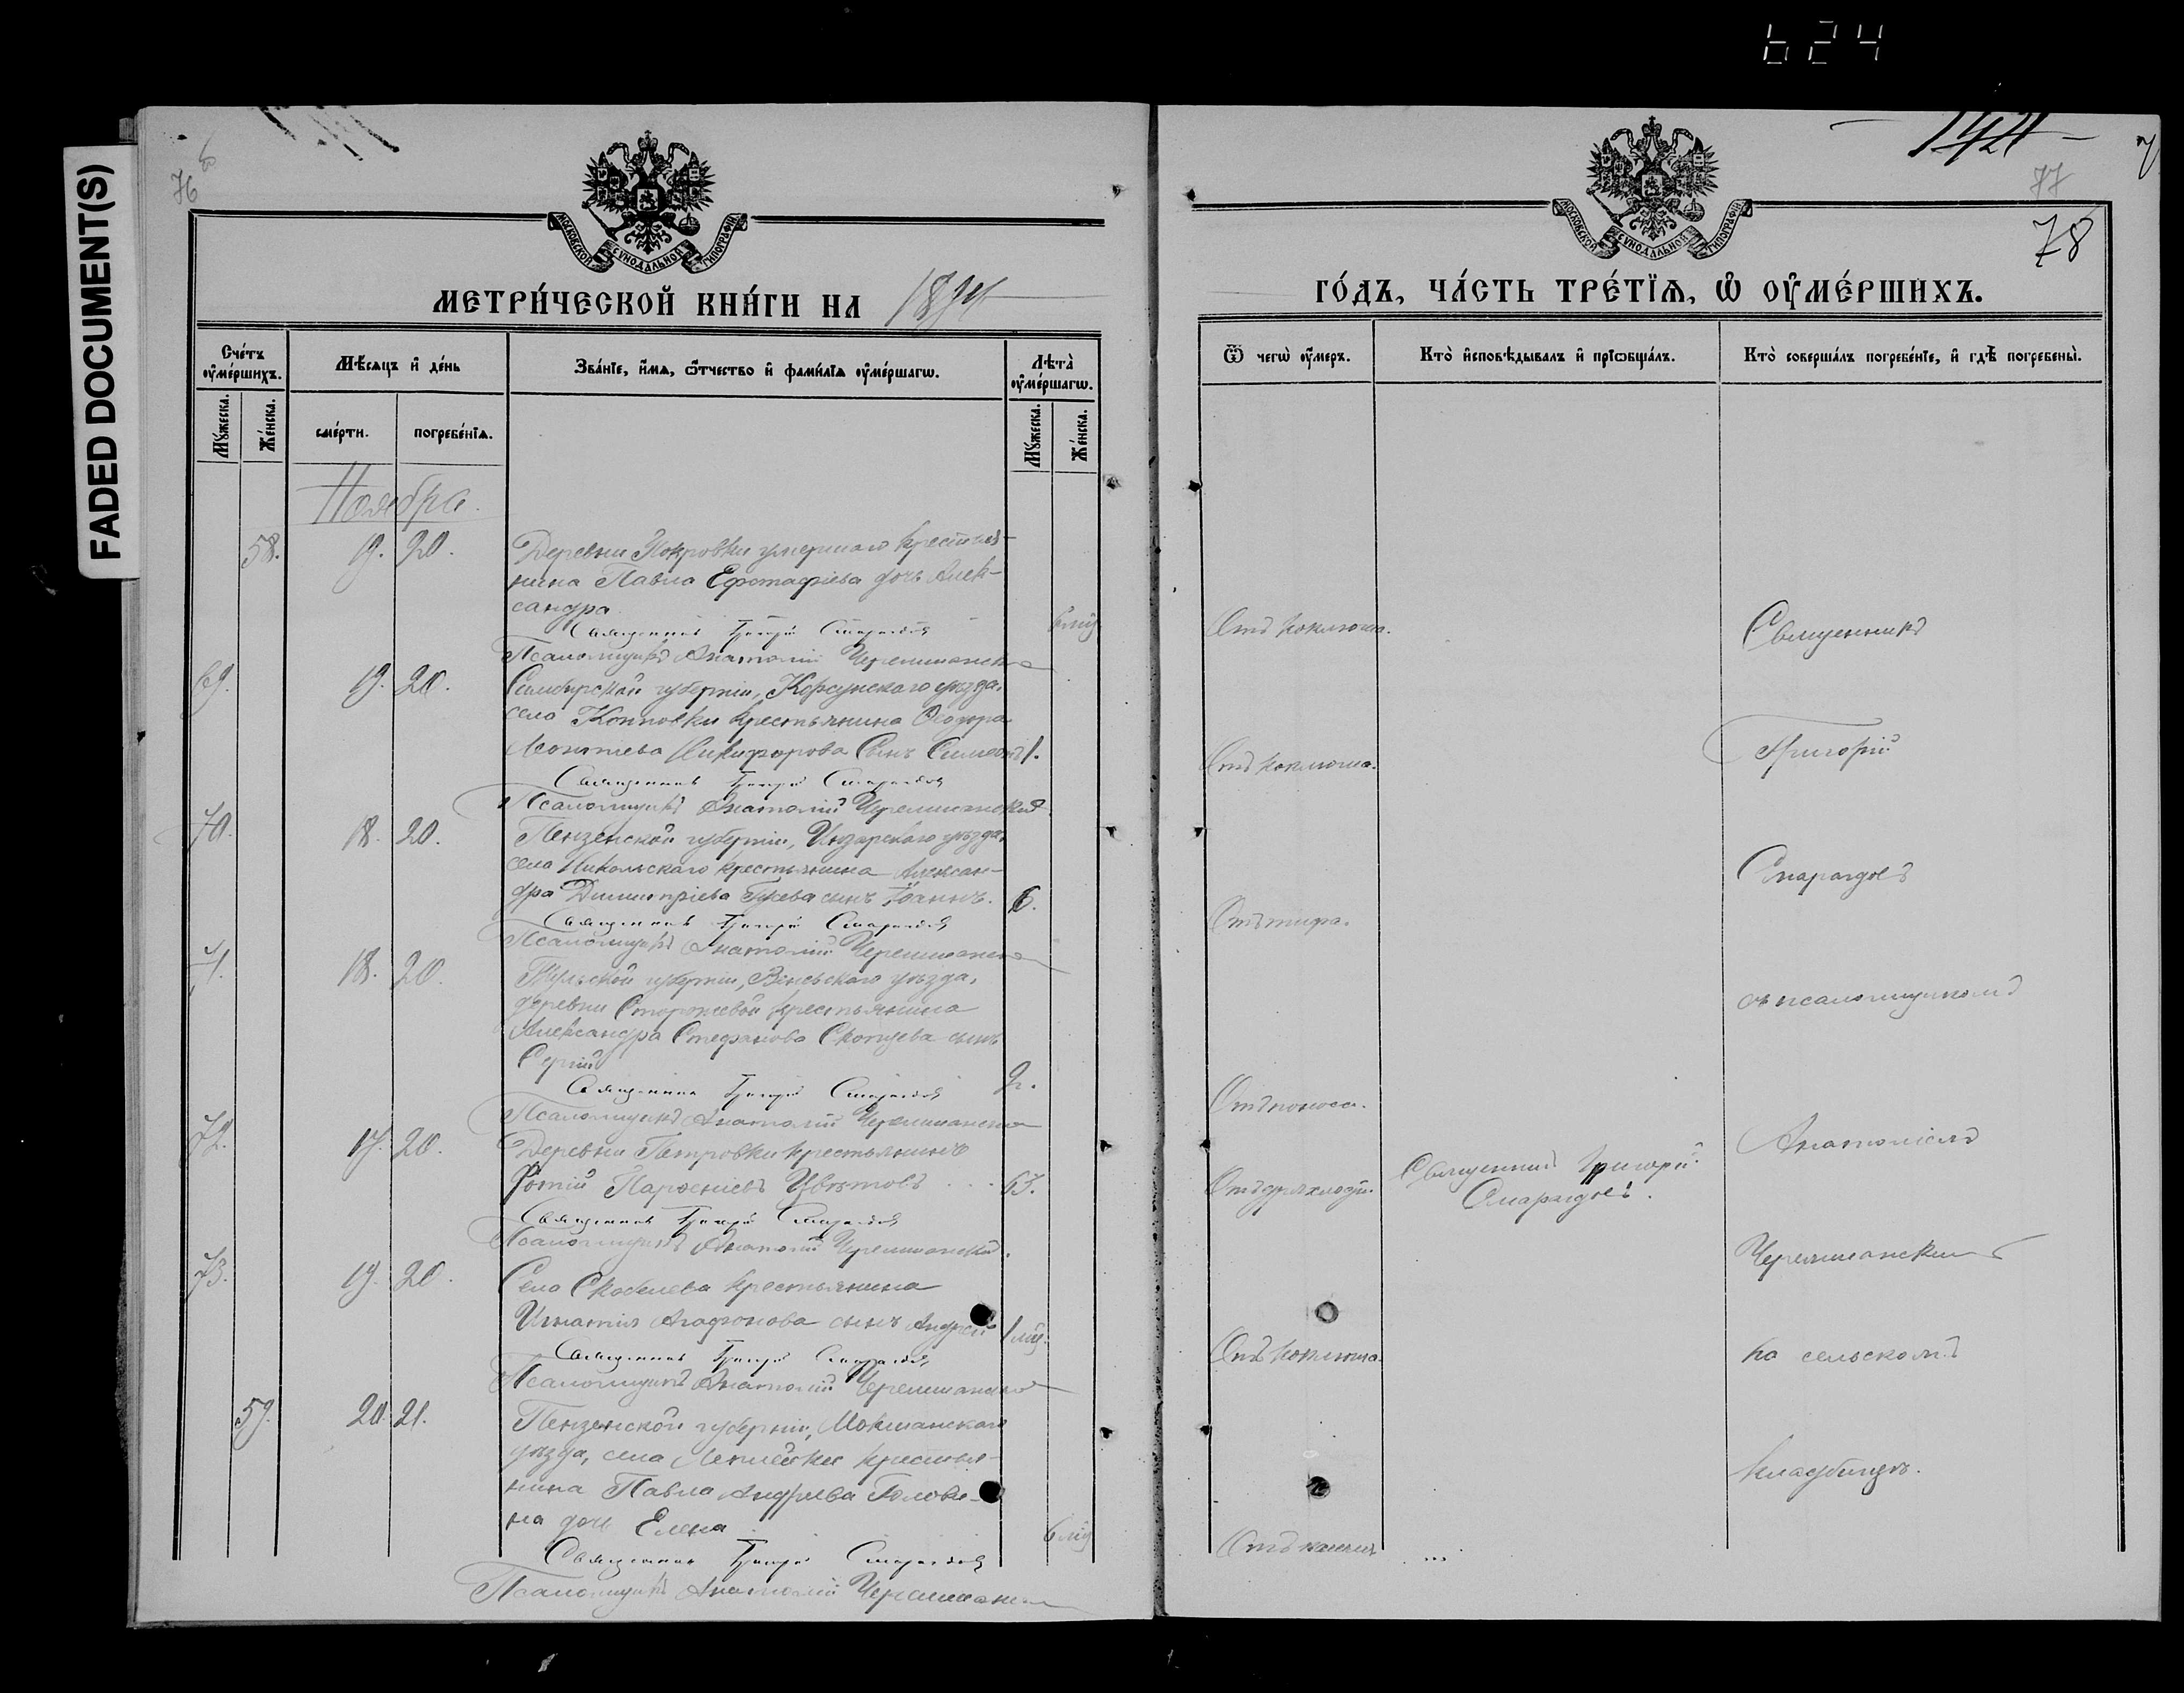 624
FADED DOCUMENT(S)
76
МОСКОВСКОЙ СѴНОДАЛЬНОЙ ТИПОГРАФІИ
МЕТРИ́ЧЕСКОЙ КНИ́ГИ НА 1894
Сче́тъ оумершихъ.
Мѣсяцъ и де́нь
Зва́ніе, и́мя, ѿтчество и фами́лія оуме́ршагѡ.
Лѣта̀ оуме́ршагѡ.
Му́жеска.
Же́нска.
сме́рти.
погребе́нія.
Му́жеска.
Же́нска.
Ноябрь.
58. 19. 20. Деревни Покровки умершаго крестья-
нина Павла Ефстафіева дочь Алек-
сандра 6 мц
Священникъ Григорій Смарагдовъ
Псаломщикъ Анатолій Черемшанскій
69. 19. 20. Симбирской губерніи, Корсунскаго уѣзда,
село Коптовки крестьянина Ѳеодора
Леонтіева Никифорова Сынъ Симеонъ 1.
Священникъ Григорій Смарагдовъ
Псаломщикъ Анатолій Черемшанскій
70. 18. 20. Пензенской губерніи, Инзарскаго уѣзда,
села Никольскаго крестьянина Алексан-
дра Димитріева Гусева сынъ Іоаннъ. 6.
Священникъ Григорій Смарагдовъ
Псаломщикъ Анатолій Черемшанскій
71. 18. 20. Тульской губерніи, Веневскаго уѣзда,
деревни Сторожевой крестьянина
Александра Стефанова Скопцева сынъ
Сергій 2.
Священникъ Григорій Смарагдовъ
Псаломщикъ Анатолій Черемшанскій
72. 17. 20. Деревни Петровки крестьянинъ
Фотій Парѳеніевъ Цвѣтовъ 63.
Священникъ Григорій Смарагдовъ
Псаломщикъ Анатолій Черемшанскій.
73. 19. 20. Село Скобелева крестьянина
Игнатія Агафонова сынъ Андрей 1 мц.
Священникъ Григорій Смарагдовъ
Псаломщикъ Анатолій Черемшанскій
59. 20. 21. Пензенской губерніи, Мокшанскаго
уѣзда, села крестья-
нина Павла Андреева Голови-
на дочь Елена 6 мц
Священникъ Григорій Смарагдовъ
Псаломщикъ Анатолій Черемшанскій
77
78
МОСКОВСКОЙ СѴНОДАЛЬНОЙ ТИПОГРАФІИ
ГО́ДЪ, ЧА́СТЬ ТРЕ́ТІЯ, Ѡ ОУМЕ́РШИХЪ.
Ѿ чегѡ оу́меръ.
Кто̀ исповѣдывалъ и пріѡбща́лъ.
Кто̀ соверша́лъ погребе́ніе, и гдѣ погребены̀.
Отъ коклюша.
Священникъ
Отъ коклюша.
Григорій
Смарагдовъ
Отъ тифа.
съ псаломщикомъ
Отъ поноса.
Анатоліемъ
Отъ дряхлости.
Священникъ Григорій
Смарагдовъ.
Черемшанскимъ
Отъ коклюша.
на сельскомъ
кладбищѣ.
Отъ кашля